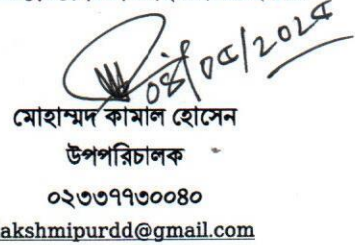 ০৪/০৫/২০২৫
মোহাম্মদ কামাল হোসেন
উপপরিচালক
০২৩৩৭৭৩০০৪০
akshmipurdd@gmail.com